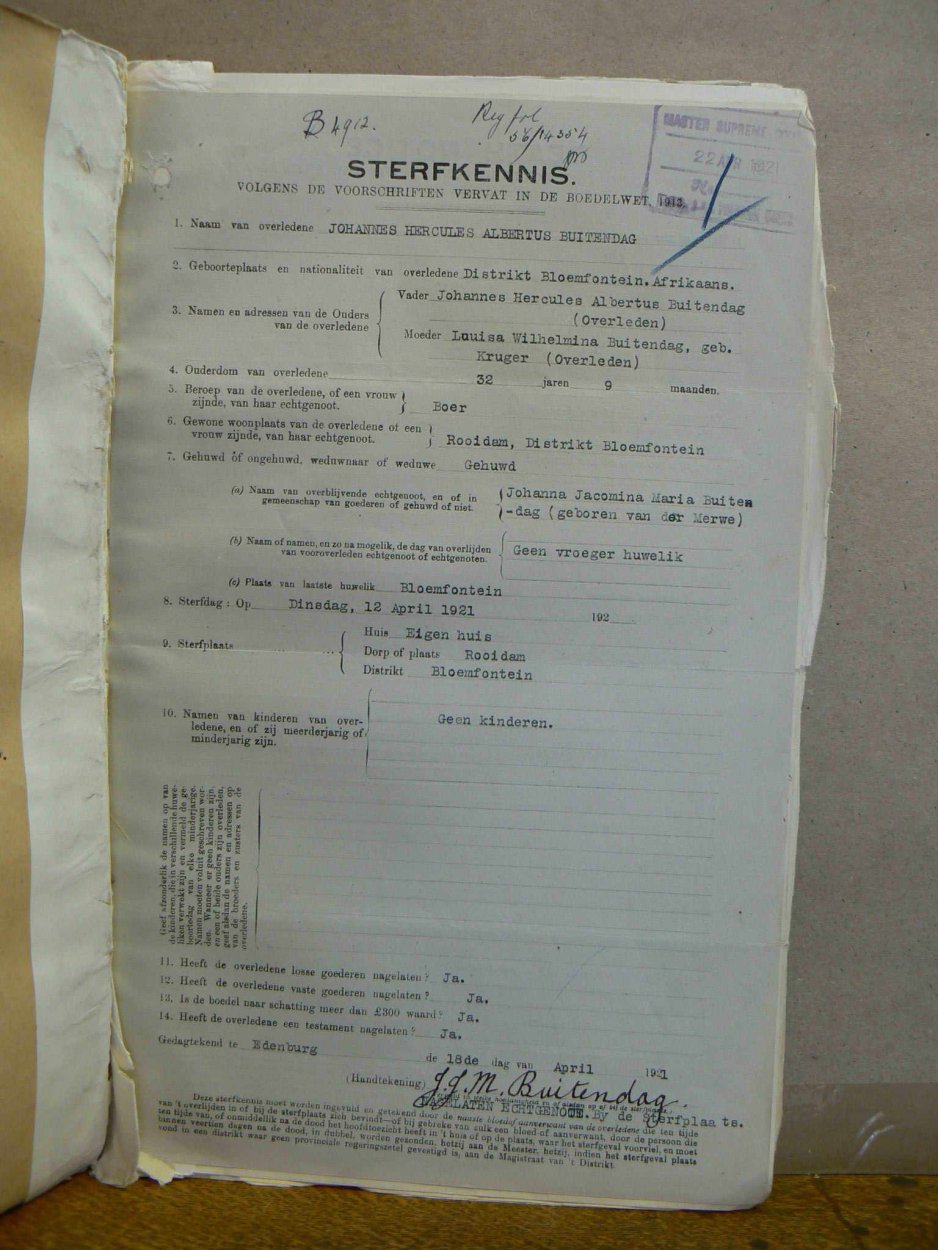 B 4912.
Reg fol
56/14354
MASTER SUPREME
22 APR 1921
STERFKENNIS.
VOLGENS DE VOORSCHRIFTEN VERVAT IN DE BOEDELWET, 1913.
1. Naam van overledene JOHANNES HERCULES ALBERTUS BUITENDAG
2. Geboorteplaats en nationaliteit van overledene Distrikt Bloemfontein. Afrikaans.
3. Namen en adressen van de Ouders van de overledene
Vader Johannes Hercules Albertus Buitendag
(Overleden)
Moeder Louisa Wilhelmina Buitendag, geb.
Kruger (Overleden)
4. Ouderdom van overledene 32 jaren 9 maanden.
5. Beroep van de overledene, of een vrouw
zijnde, van haar echtgenoot. Boer
6. Gewone woonplaats van de overledene of een
vrouw zijnde, van haar echtgenoot. Rooidam, Distrikt Bloemfontein
7. Gehuwd óf ongehuwd, weduwnaar of weduwe Gehuwd
(a) Naam van overblijvende echtgenoot, en of in
gemeenschap van goederen of gehuwd of niet.
Johanna Jacomina Maria Buiten
-dag (geboren van der Merwe)
(b) Naam of namen, en zo na mogelik, de dag van overlijden
van vooroverleden echtgenoot of echtgenoten. Geen vroeger huwelik
(c) Plaats van laatste huwelik Bloemfontein
8. Sterfdag: Op Dinsdag, 12 April 1921 192
9. Sterfplaats
Huis Eigen huis
Dorp of plaats Rooidam
Distrikt Bloemfontein
10. Namen van kinderen van over-
ledene, en of zij meerderjarig of
minderjarig zijn.
Geen kinderen.
(Geef afzonderlik de namen op van
de kinderen, die in verschillende huwe-
liken verwekt zijn en vermeld de ge-
boortedag van elke minderjarige.
Namen moeten voluit geschreven wor-
den. Wanneer er geen kinderen zijn,
en een of beide ouders zijn overleden,
geef alsdan de namen en adressen op
van de broeders en zusters van de
overledene.
11. Heeft de overledene losse goederen nagelaten? Ja.
12. Heeft de overledene vaste goederen nagelaten? Ja.
13. Is de boedel naar schatting meer dan £300 waard? Ja.
14. Heeft de overledene een testament nagelaten? Ja.
Gedagtekend te Edenburg de 18de dag van April 1921
(Handtekening) J.J.M. Buitendag.
NAGELATEN ECHTGENOTE. By de Sterfplaats.
Deze sterfkennis moet worden ingevuld en getekend door de naaste bloed of aanverwant van de overledene die ten tijde
van 't overlijden in of bij de sterfplaats zich bevindt—of bij gebreke van zulk een bloed- of aanverwant, door de persoon die
ten tijde van, of onmiddellik na de dood het hoofdtoezicht heeft in 't huis of op de plaats, waar het sterfgeval voorviel, en moet
binnen veertien dagen na de dood, in dubbel, worden gezonden, hetzij aan de Meester, hetzij, indien het sterfgeval plaats
vond in een distrikt waar geen provinciale regeringszetel gevestigd is, aan de Magistraat van 't Distrikt